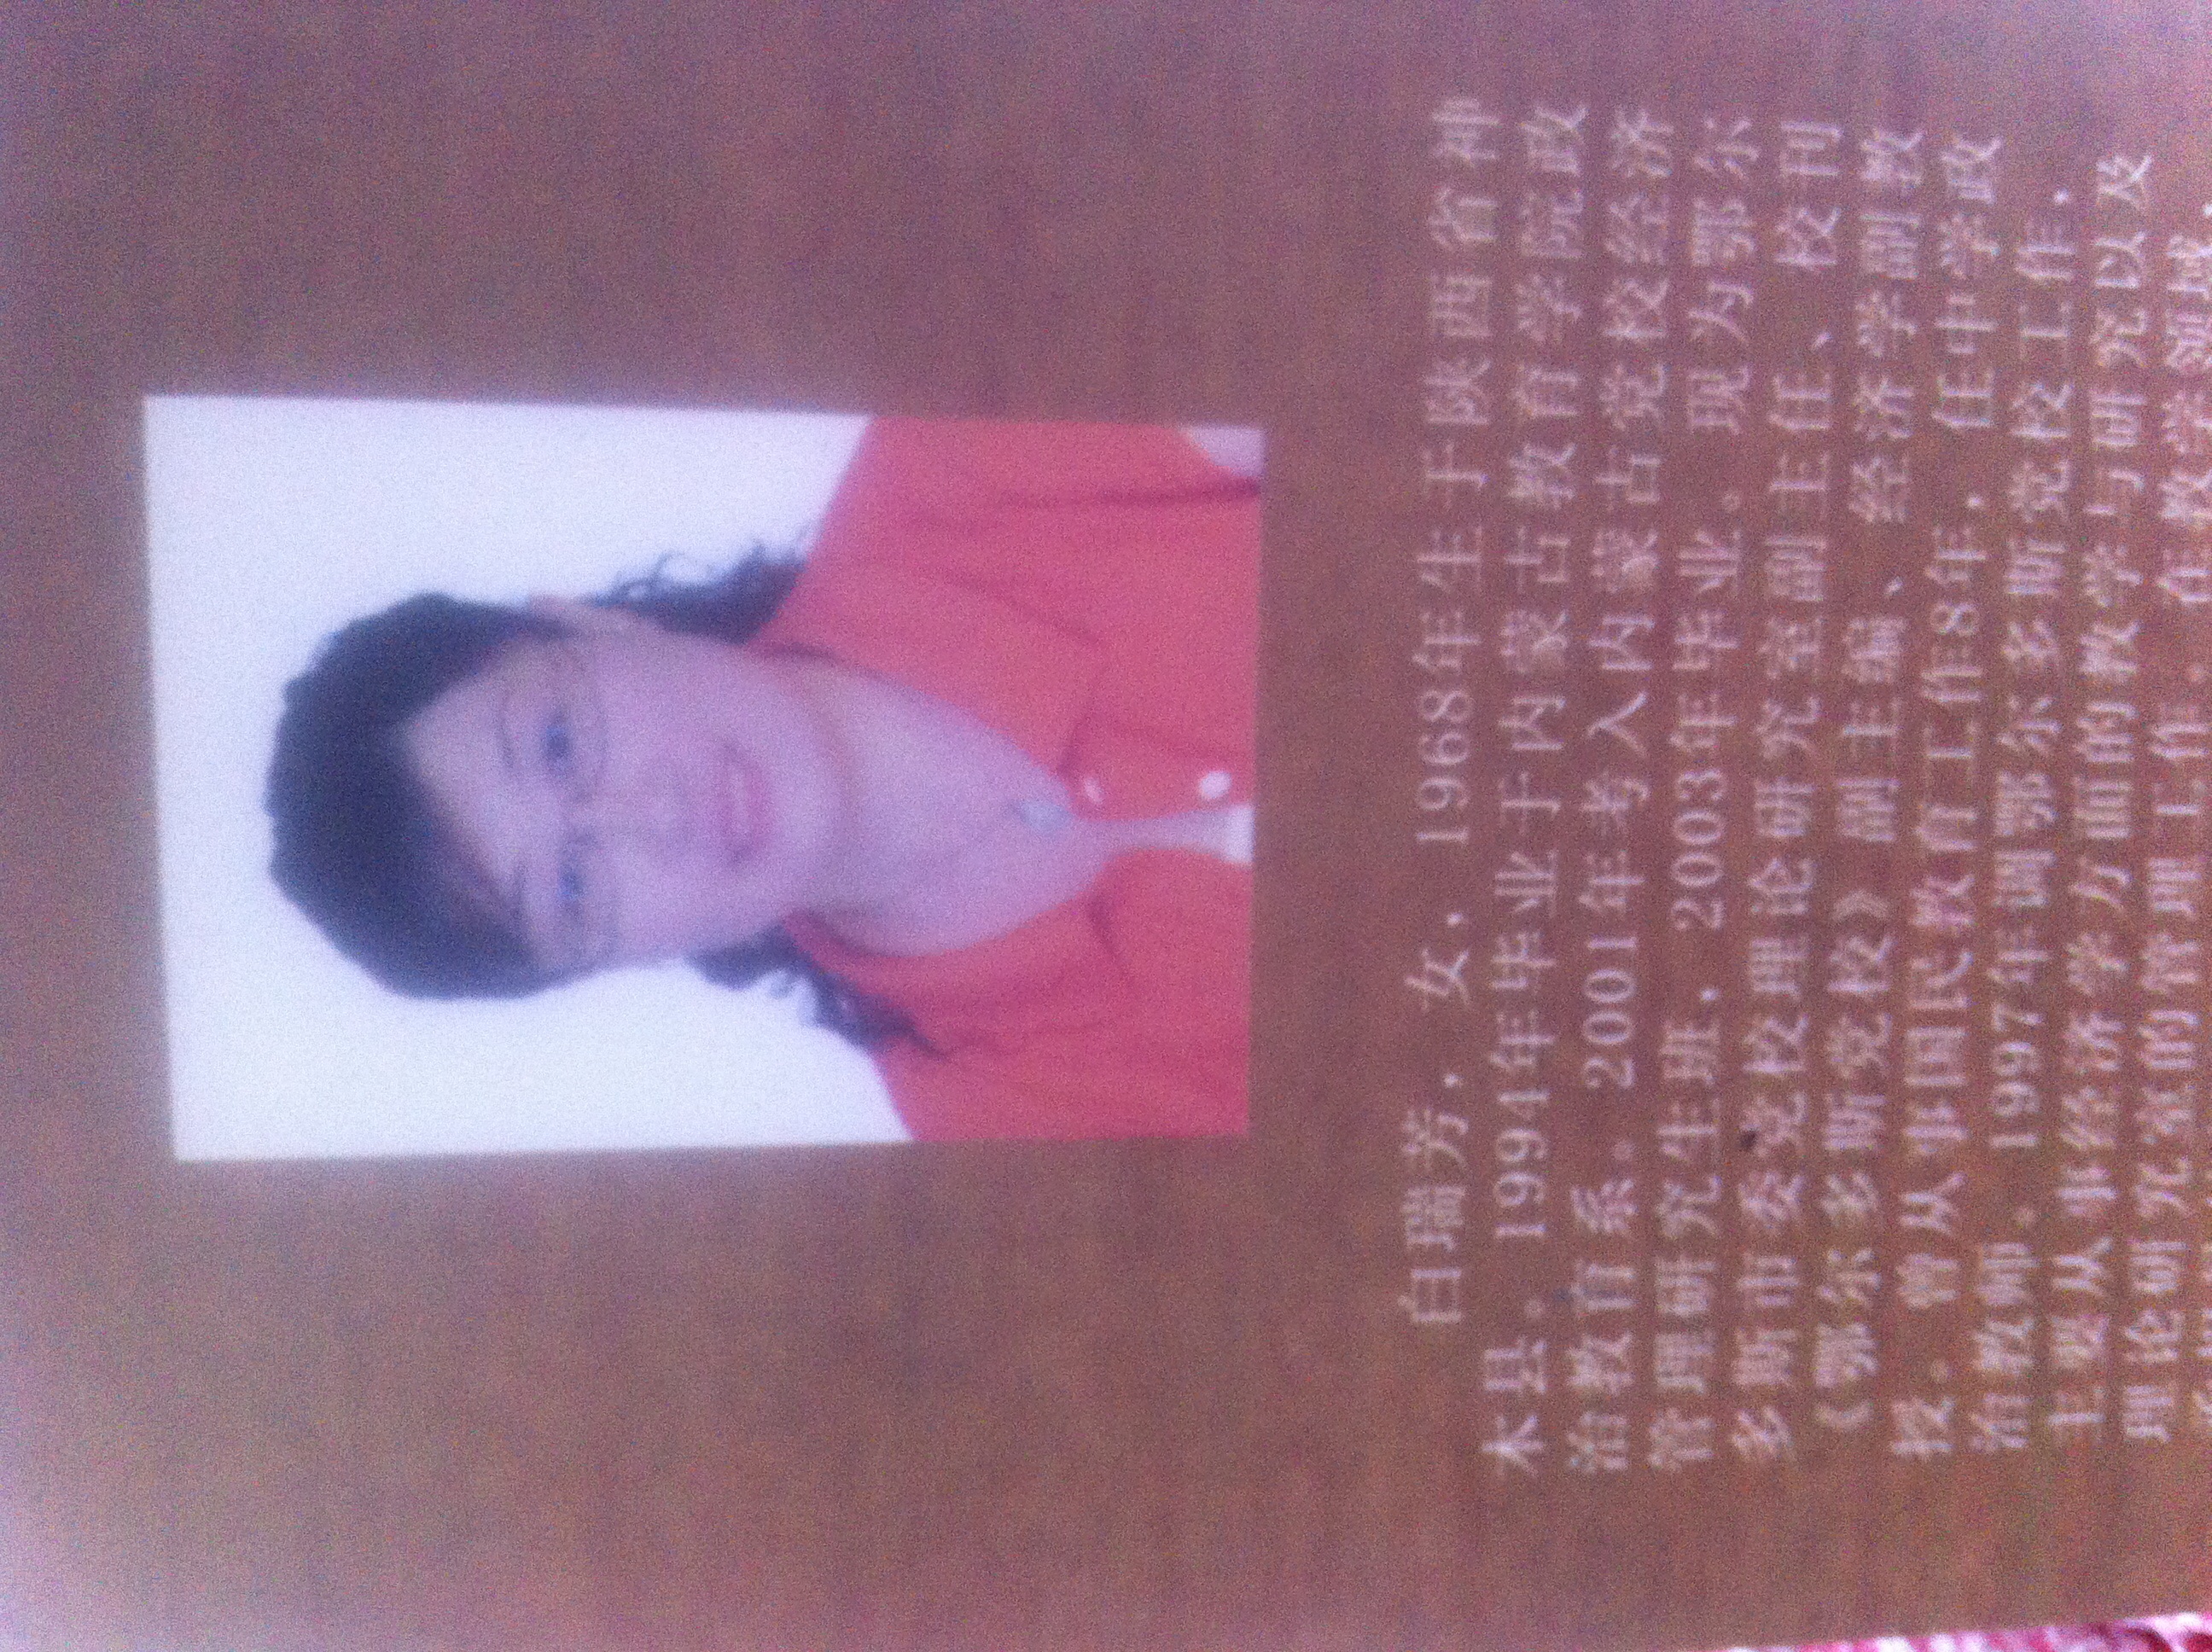 白瑞芳，女，1968年生于陕西省神
木县。1994年毕业于内蒙古教育学院政
治教育系。2001年考入内蒙古党校经济
管理研究生班，2003年毕业。现为鄂尔
多斯市委党校理论研究室副主任、校刊
《鄂尔多斯党校》副主编、经济学副教
授。曾从事国民教育工作8年，任中学政
治教师。1997年调鄂尔多斯党校工作，
主要从事经济学方面的教学与研究以及
理论研究室的管理工作。在教学领域，